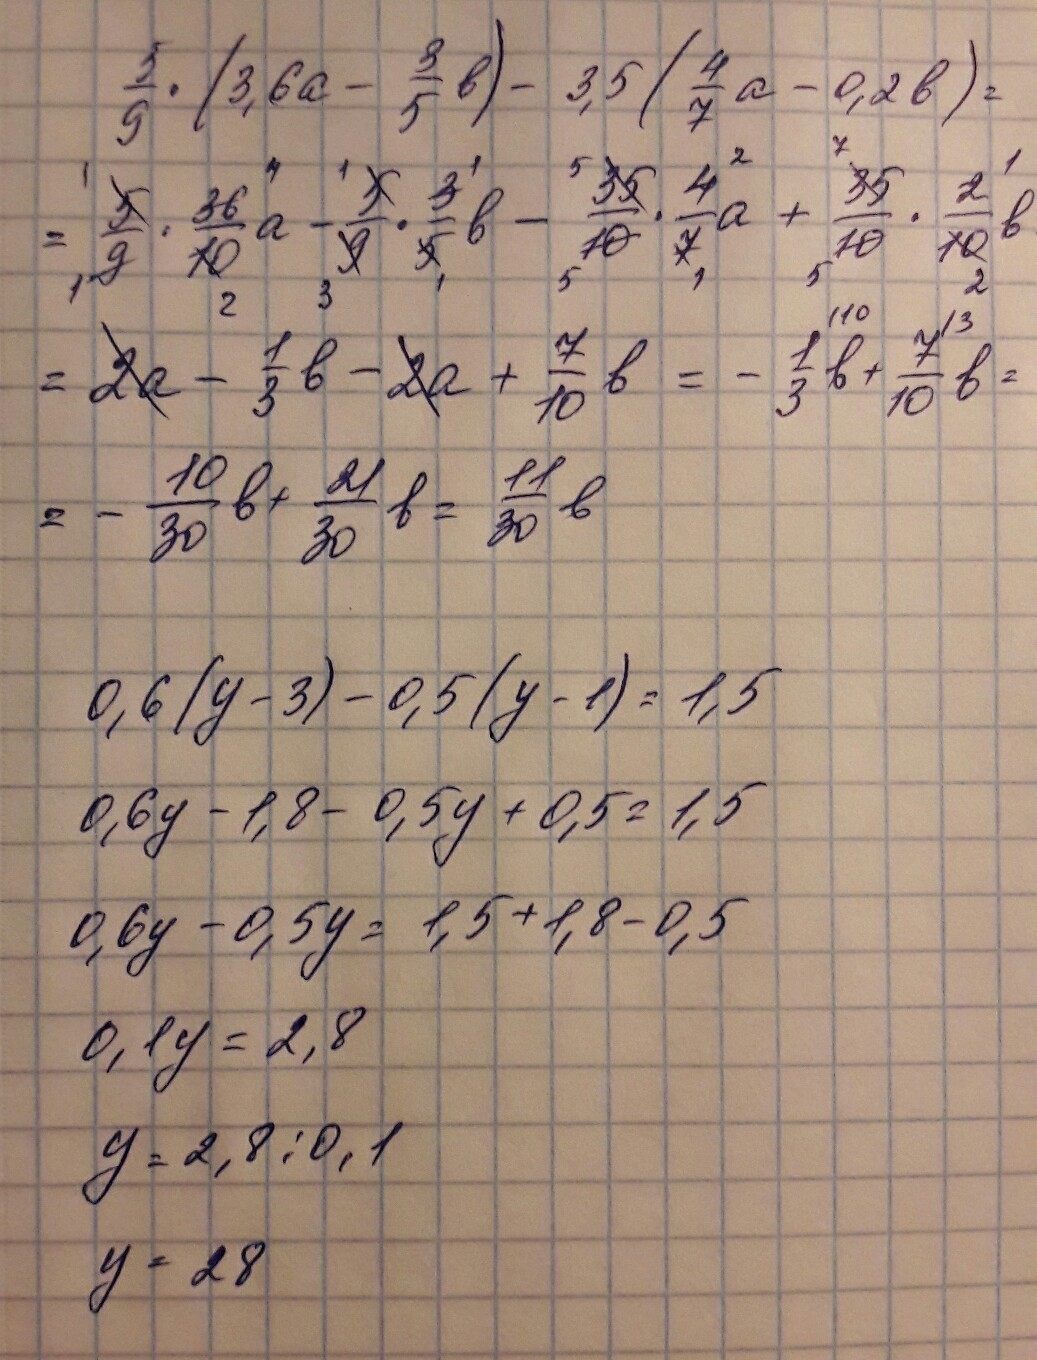 5/9 · (3,6a - 3/5 b) - 3,5 (4/7 a - 0,2b) =
= 5/9 · 36/10 a - 5/9 · 3/5 b - 35/10 · 4/7 a + 35/10 · 2/10 b
= 2a - 1/3 b - 2a + 7/10 b = - 1/3 b + 7/10 b =
= - 10/30 b + 21/30 b = 11/30 b
0,6(y - 3) - 0,5(y - 1) = 1,5
0,6y - 1,8 - 0,5y + 0,5 = 1,5
0,6y - 0,5y = 1,5 + 1,8 - 0,5
0,1y = 2,8
y = 2,8 : 0,1
y = 28